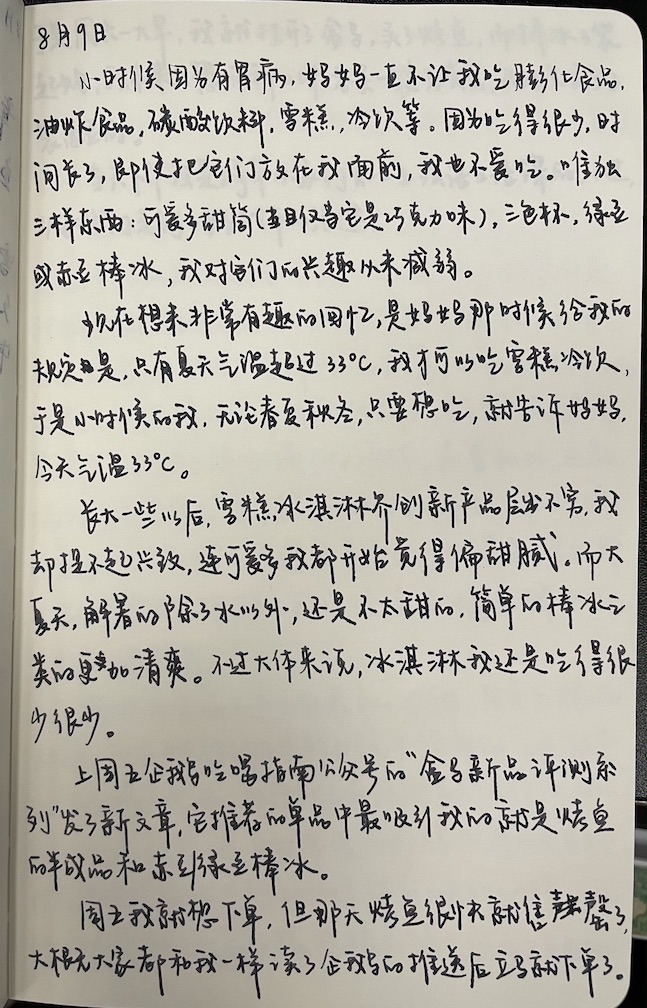 8月9日
小时候因为有胃病，妈妈一直不让我吃膨化食品，
油炸食品，碳酸饮料，雪糕，冷饮等。因为吃得很少，时
间长了，即使把它们放在我面前，我也不爱吃。唯独
三样东西：可爱多甜筒（并且仅当它是巧克力味），三色杯，绿豆
或赤豆棒冰，我对它们的兴趣从未减弱。
现在想来非常有趣的回忆，是妈妈那时候给我的
规定是，只有夏天气温超过33℃，我才可以吃雪糕冷饮，
于是小时候的我，无论春夏秋冬，只要想吃，就告诉妈妈，
今天气温33℃。
长大一些以后，雪糕冰淇淋界创新产品层出不穷，我
却提不起兴致，连可爱多我都开始觉得偏甜腻。而大
夏天，解暑的除了水以外，还是不太甜的，简单的棒冰之
类的更加清爽。不过大体来说，冰淇淋我还是吃得很
少很少。
上周五企鹅吃喝指南公众号的“盒马新品评测系
列”发了新文章，它推荐的单品中最吸引我的就是烤鱼
的半成品和赤豆绿豆棒冰。
周五我就想下单，但那天烤鱼很快就售罄了，
大概是大家都和我一样读了企鹅的推送后立马就下单了。